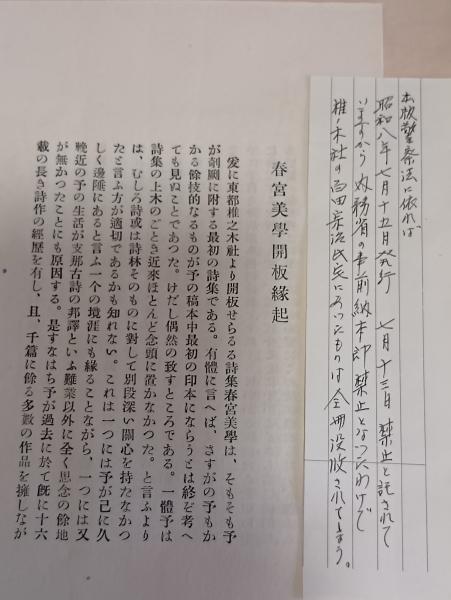 出版警察法に依れば
昭和八年七月十五日発行　七月十三日禁止と記されて
いますから内務省の事前納本即禁止となったわけで
椎ノ木社の百田宗治氏宅にあったものは全冊没収されてしまう。
春宮美學開板緣起
爰に東都椎之木社より開板せらるる詩集春宮美學は、そもそも予
が剞劂に附する最初の詩集である。有體に言へば、さすがの予もか
かる餘技的なるものが予の稿本中最初の印本にならうとは終ぞ考へ
ても見ぬことであつた。けだし偶然の致すところである。一體予は
詩集の上木のごとき近來ほとんど念頭に置かなかつた。と言ふより
は、むしろ詩或は詩林そのものに對して別段深い關心を持たなかつ
たと言ふ方が適切であるかも知れない。これは一つには予が己に久
しく邊陲にあると言ふ一個の境涯にも緣ることながら、一つには又
輓近の予の生活が支那古詩の邦譯といふ難業以外に全く思念の餘地
が無かつたことにも原因する。是すなはち予が過去に於て旣に十六
載の長き詩作の經歷を有し、且、千篇に餘る多數の作品を擁しなが